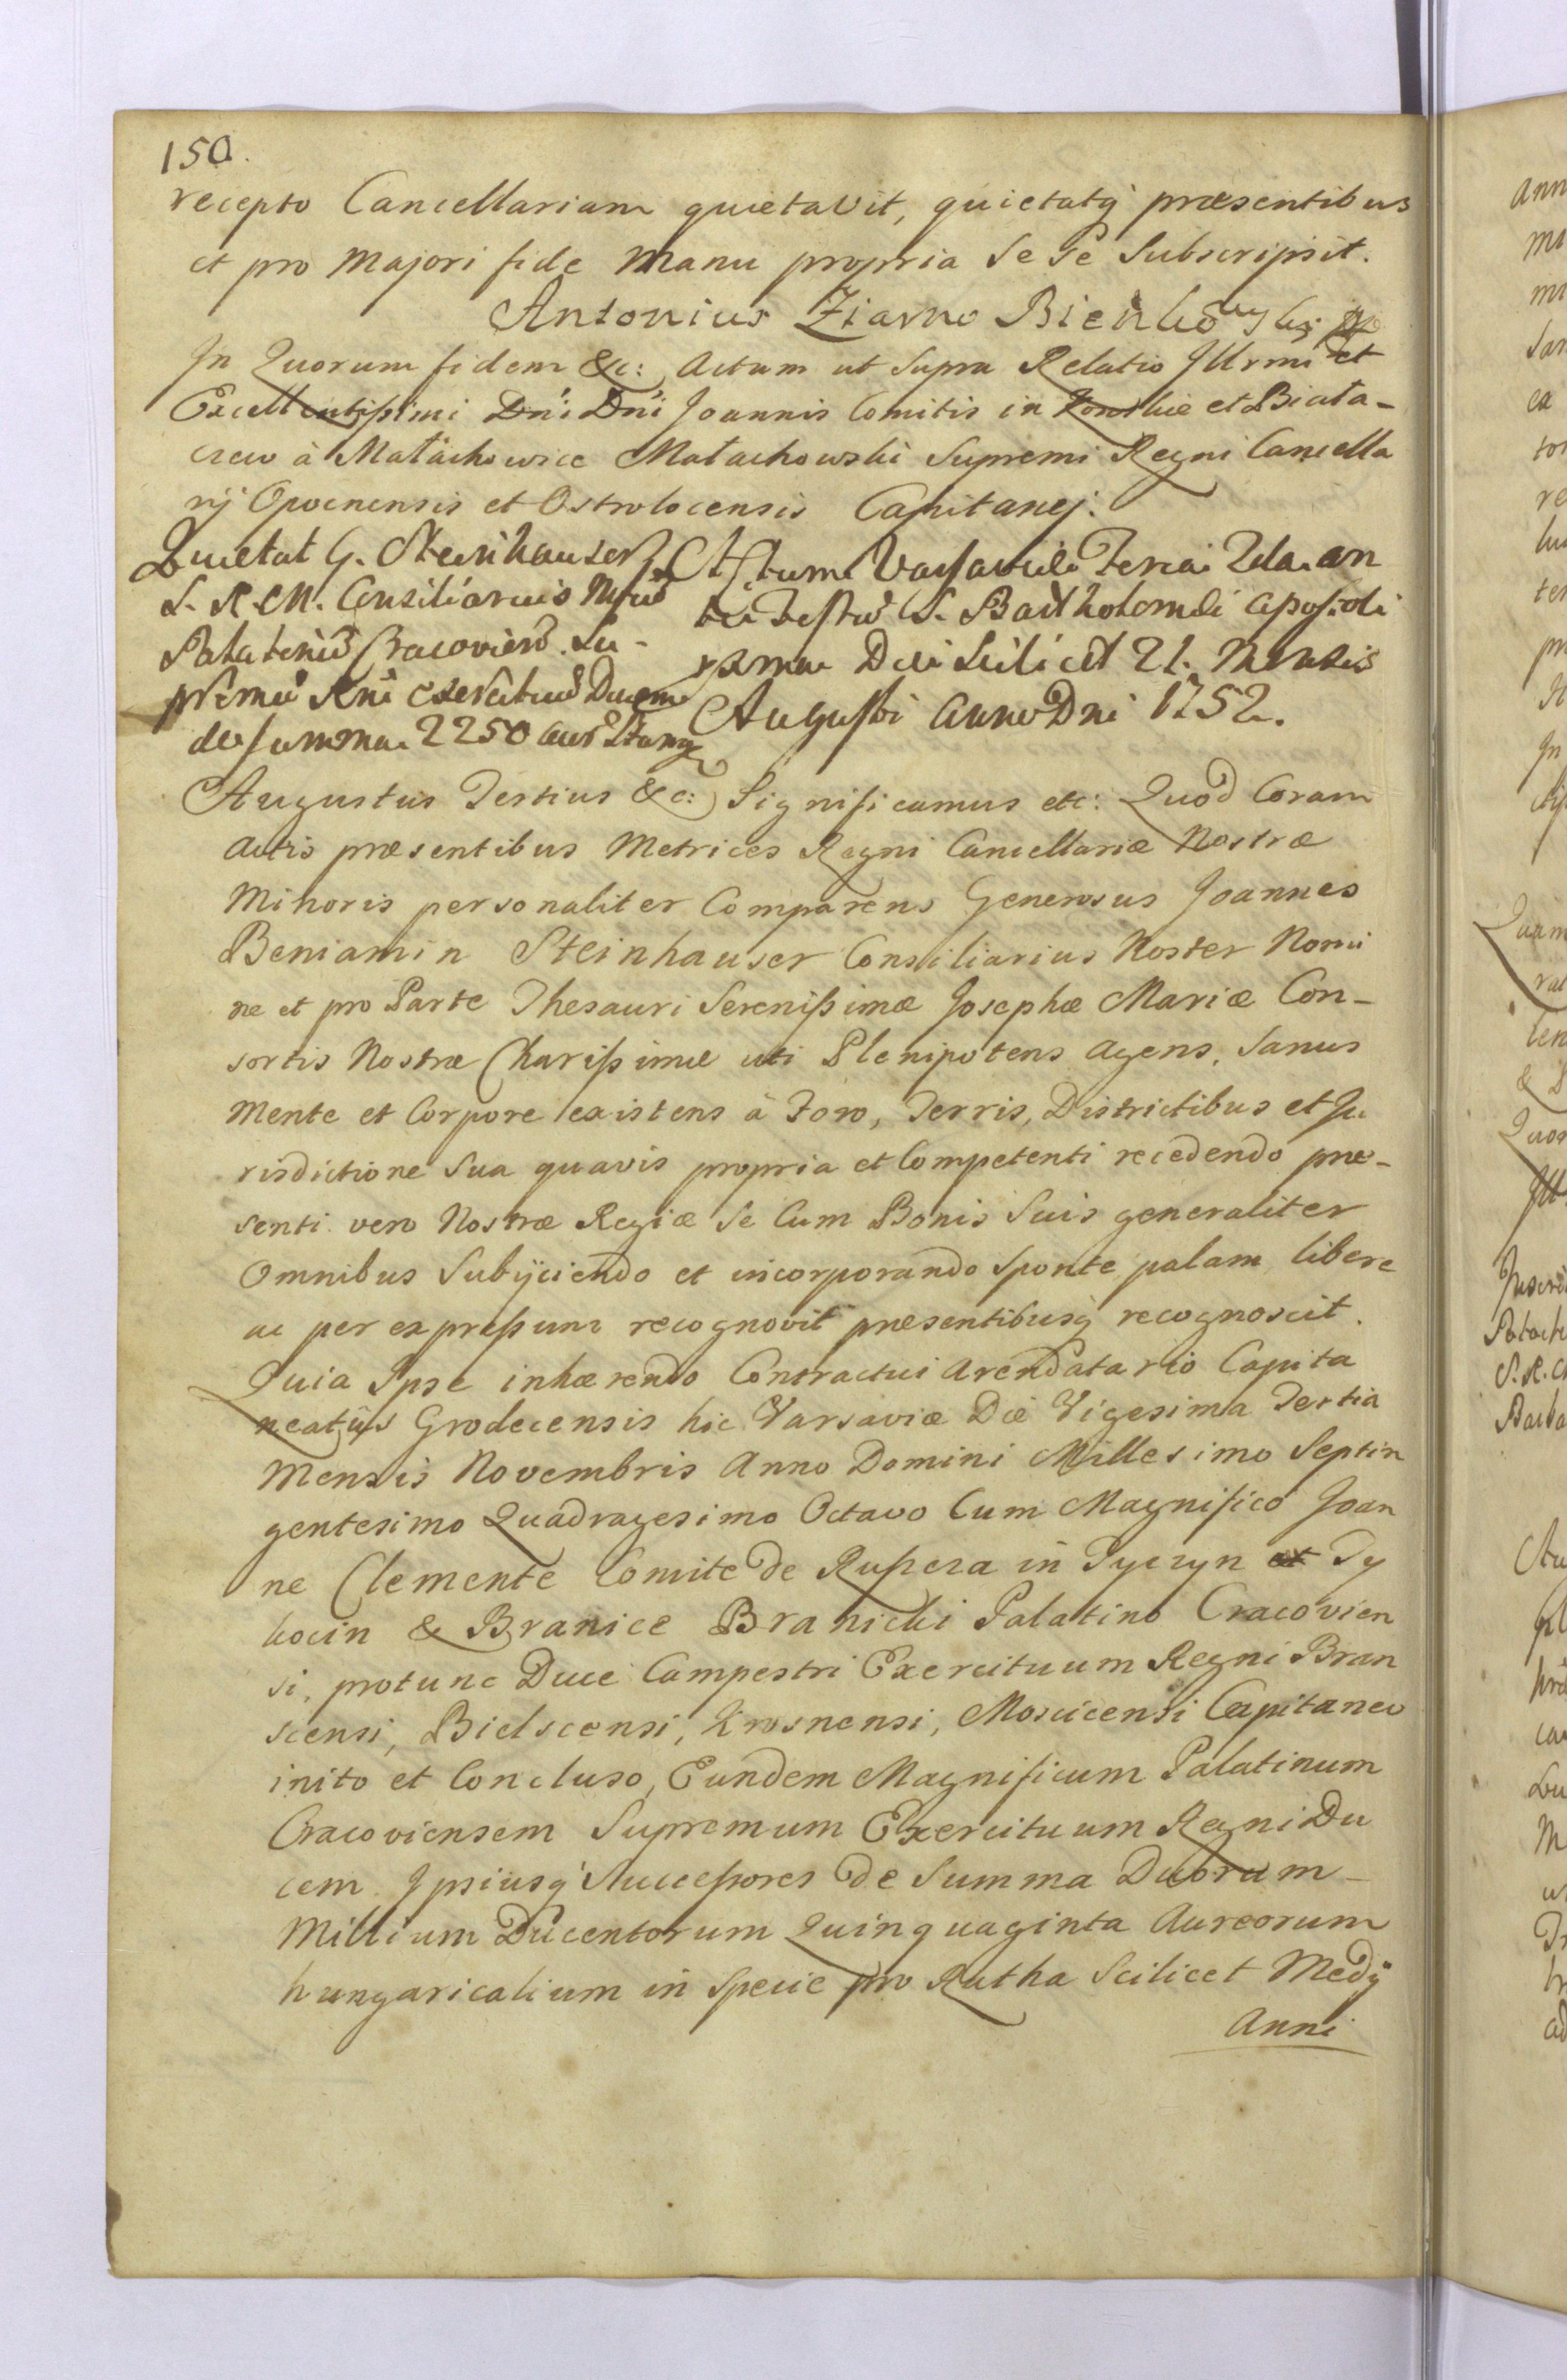 150.
recepto Cancellariam quietavit, quietatq̃ præsentibus
et pro Majori fide Manu propria Se Se Subscripsit.
Antonius Ziarno Bieńkowski
In Quorum fidem &c: Actum ut Supra Relatio Illrmi et
Excellentissimi Dn̄i Dn̄i Joannis Comitis in Konskie et Biała-
czew à Małachowice Małachowski Supremi Regni Cancella
rij Opocnensis et Ostrolocensis Capitanej.
Quietat G. Steinhauser
S. R. M. Consiliarius Mfcũ
Palatinũ Cracovien̄. Su-
premũ Rni exercituũ Ducem
de summa 2250 aur Hung
Actum Varsaviæ Feria 2da. an
te Festũ S. Bartholomæi Apostoli
Die Scilicet 21. Mensis
Augusti Anno Dni 1752.
Augustus Tertius &c: Significamus etc: Quod Coram
Actis præsentibus Metrices Regni Cancellariæ Nostræ
Minoris personaliter Comparens Generosus Joannes
Beniamin Steinhauser Consiliarius Noster Nomi
ne et pro Parte Thesauri Serenissimæ Josephæ Mariæ Con-
sortis Nostræ Charissimæ uti Plenipotens Agens, Sanus
Mente et Corpore existens à Foro, Terris, Districtibus et Ju
risdictione Sua quavis propria et Competenti recedendo præ-
senti vero Nostræ Regiæ Se Cum Bonis Suis generaliter
Omnibus Subijciendo et incorporando Sponte palam libere
ac per expressum recognovit præsentibusq̃ recognoscit.
Quia Ipse inhærendo Contractui Arendatario Capita
neatûs Grodecensis hic Varsaviæ Die Vigesima Tertia
Mensis Novembris Anno Domini Millesimo Septin
gentesimo Quadragesimo Octavo Cum Magnifico Joan
ne Clemente Comite de Ruszcza in Tyczyn et Ty
kocin & Branice Branicki Palatino Cracovien
si, protunc Duce Campestri Exercituum Regni Bran
scensi, Bielscensi, Krosnensi, Moscicensi Capitaneo
inito et Concluso, Eundem Magnificum Palatinum
Cracoviensem Supremum Exercituum Regni Du
cem Ipsiusq̃ Successores de Summa Duorum-
Millium Ducentorum Quinquaginta Aureorum
hungaricalium in Specie pro Ratha Scilicet Medij
Anni